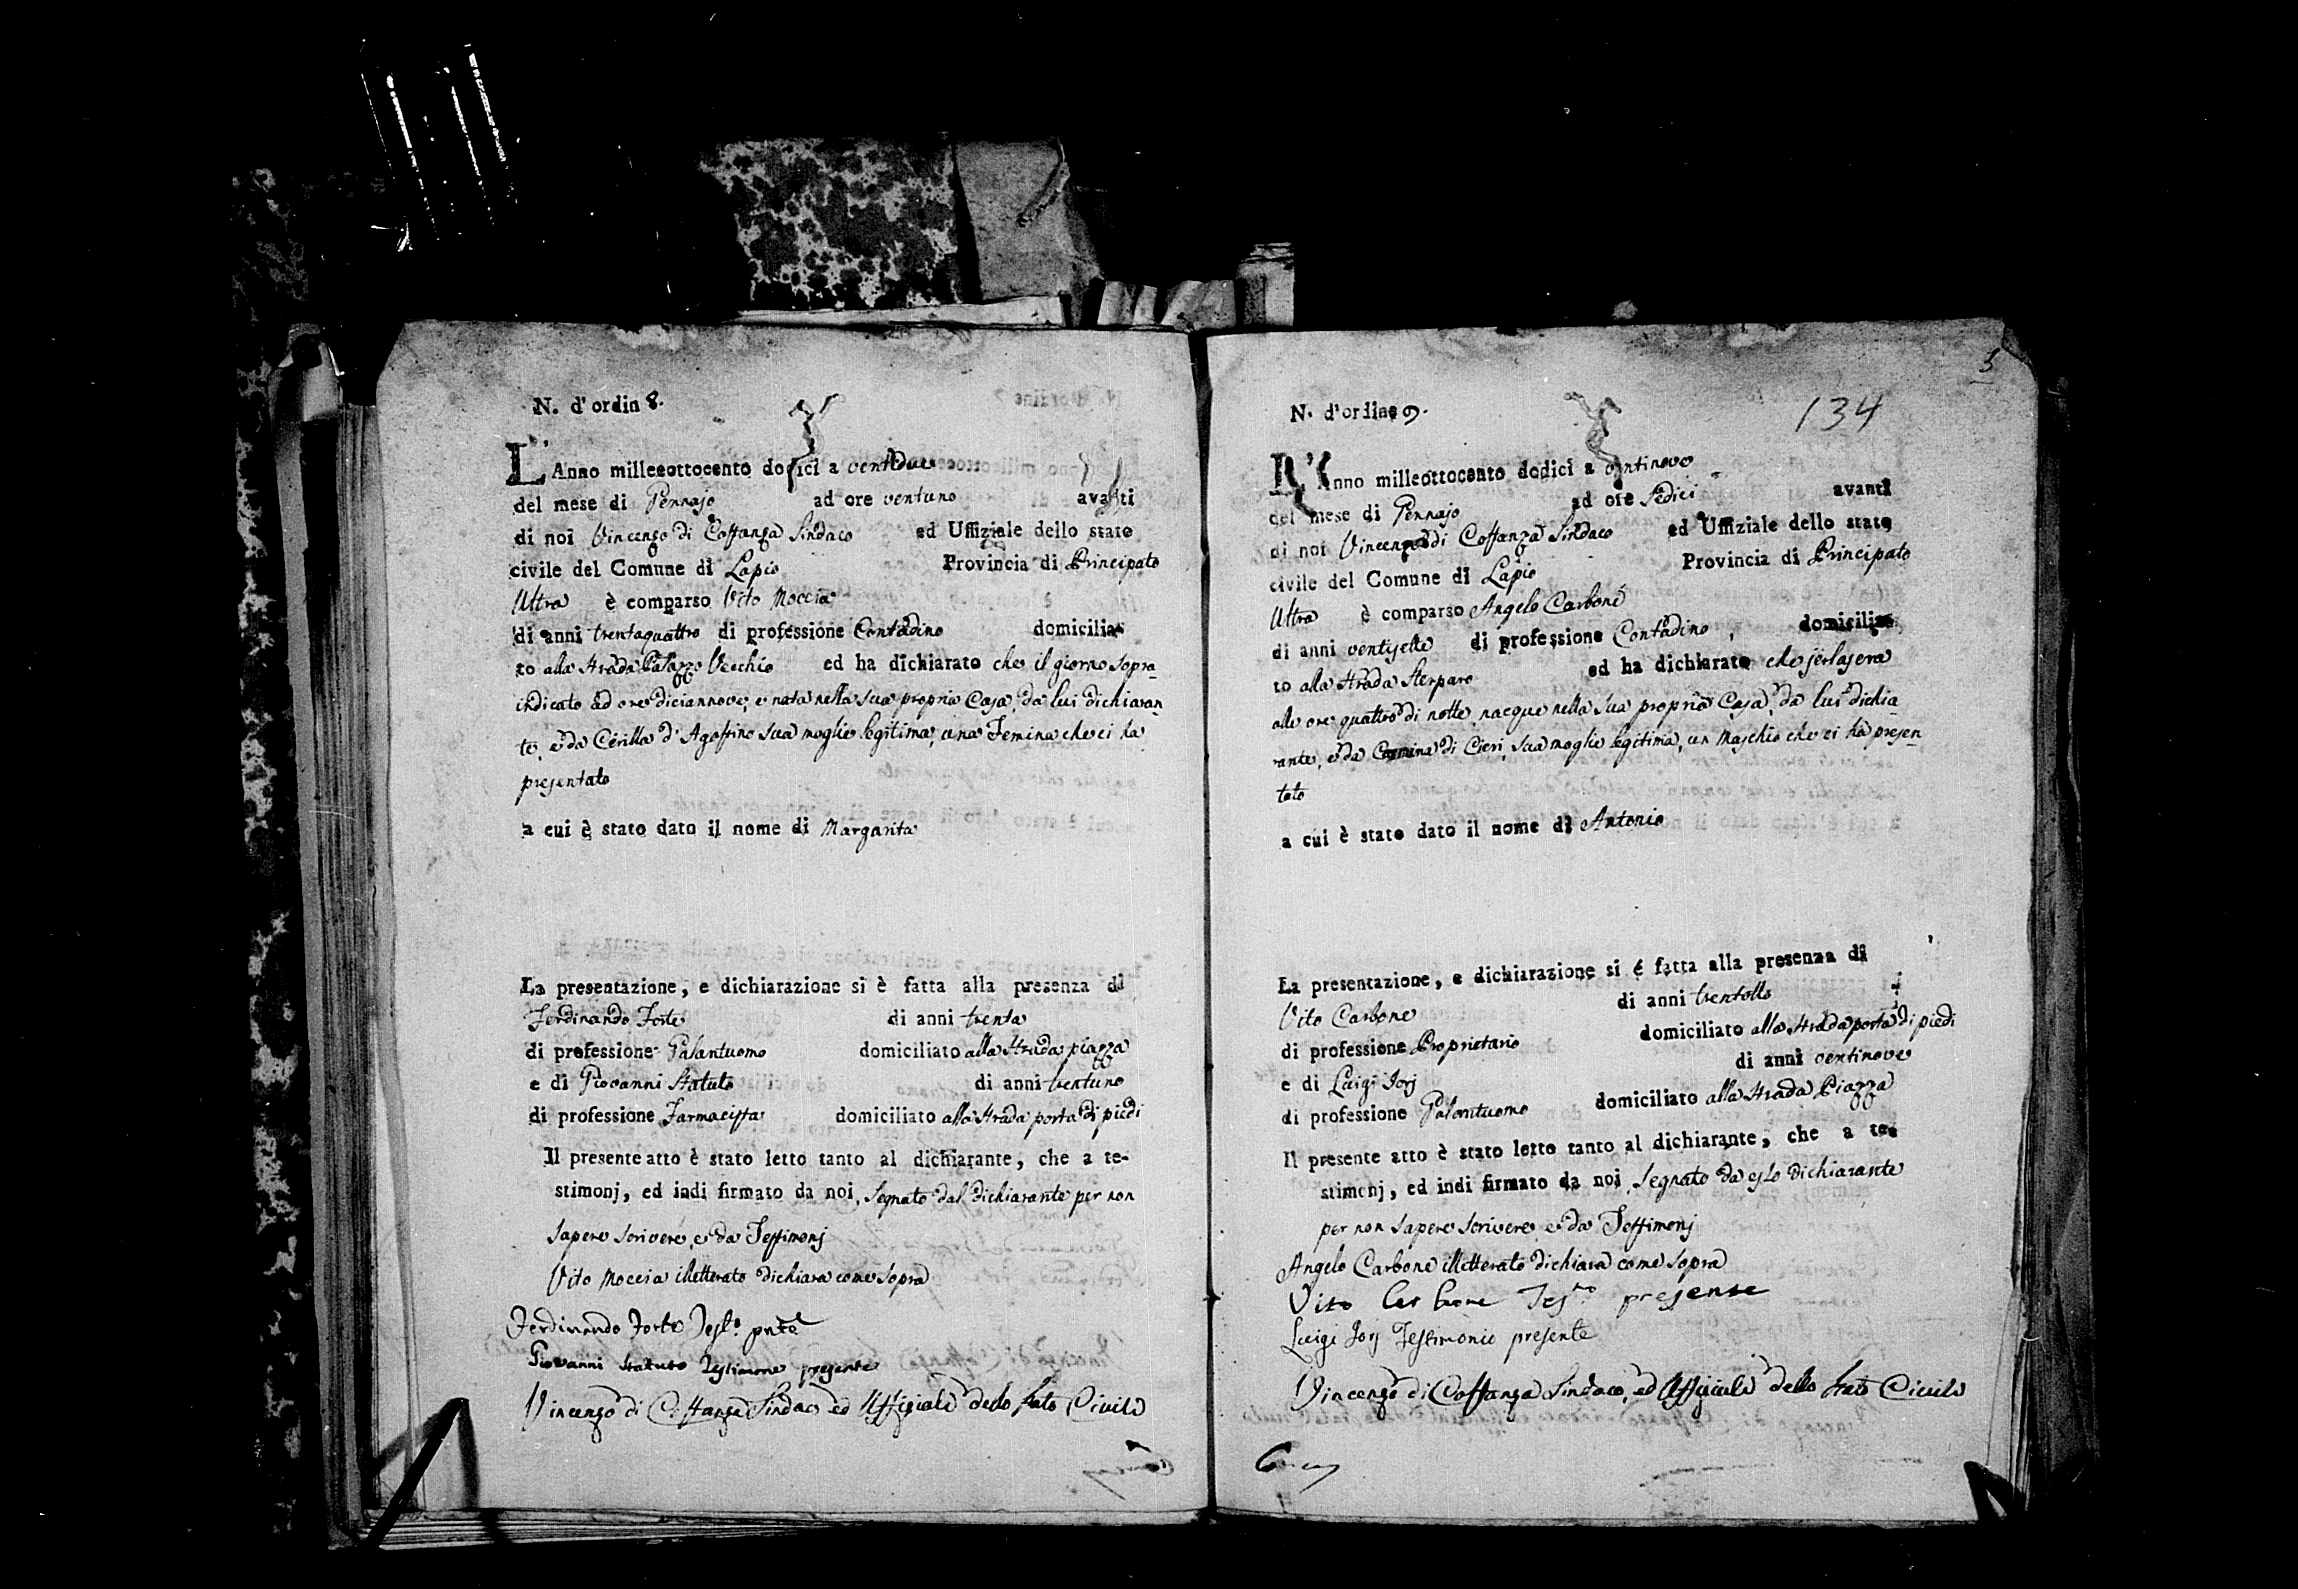 N. d'ordin 8.
L'Anno milleeottocento dodici a ventidue
del mese di Gennajo ad ore ventuno avanti
di noi Vincenzo di Costanza Sindaco ed Uffiziale dello stato
civile del Comune di Lapio Provincia di Principato
Ultra è comparso Vito Moccia
di anni trentaquattro di professione Contadino domicilia
to alla Strada Palazzo Vecchio ed ha dichiarato che il giorno sopra-
indicato ad ore diciannove, e nata nella sua propria Casa, da lui dichiaran
te, e da Cirilla d'Agostino sua moglie legitima, una Femina che ci ha
presentato
a cui è stato dato il nome di Margarita
La presentazione, e dichiarazione si è fatta alla presenza di
Ferdinando Forte di anni trenta
di professione Galantuomo domiciliato alla Strada piazza
e di Giovanni Statuto di anni trentuno
di professione Farmacista domiciliato alla Strada porta di piedi
Il presente atto è stato letto tanto al dichiarante, che a te-
stimonj, ed indi firmato da noi, segnato dal dichiarante per non
sapere scrivere, e da Testimonj
Vito Moccia illetterato dichiara come sopra
Ferdinando Forte Test.o pnte
Giovanni Statuto Testimone presente
Vincenzo di Costanza Sindaco ed Uffiziale dello stato Civile
5
134
N. d'ordine 9.
L'Anno milleottocento dodici a ventinove
del mese di Gennajo ad ore sedici avanti
di noi Vincenzo di Costanza Sindaco ed Uffiziale dello stato
civile del Comune di Lapio Provincia di Principato
Ultra è comparso Angelo Carbone
di anni ventisette di professione Contadino, domicilia
to alla Strada Sterparo ed ha dichiarato che jerlasera
alle ore quattro di notte, nacque nella sua propria Casa, da lui dichia-
rante, e da Carmina di Cieri, sua moglie legitima, un Maschio che ci ha presen-
tato
a cui è stato dato il nome di Antonio
La presentazione, e dichiarazione si é fatta alla presenza di
Vito Carbone di anni trentotto
di professione Proprietario domiciliato alla Strada porta di piedi
e di Luigi Jorj di anni ventinove
di professione Galantuomo domiciliato alla Strada Piazza
Il presente atto è stato letto tanto al dichiarante, che a te-
stimonj, ed indi firmato da noi, segnato da esso dichiarante
per non sapere scrivere, e da Testimonj
Angelo Carbone illetterato dichiara come sopra
Vito Carbone Tes.mo presente
Luigi Jorj Testimonio presente
Vincenzo di Costanza Sindaco, ed Uffiziale dello stato Civile